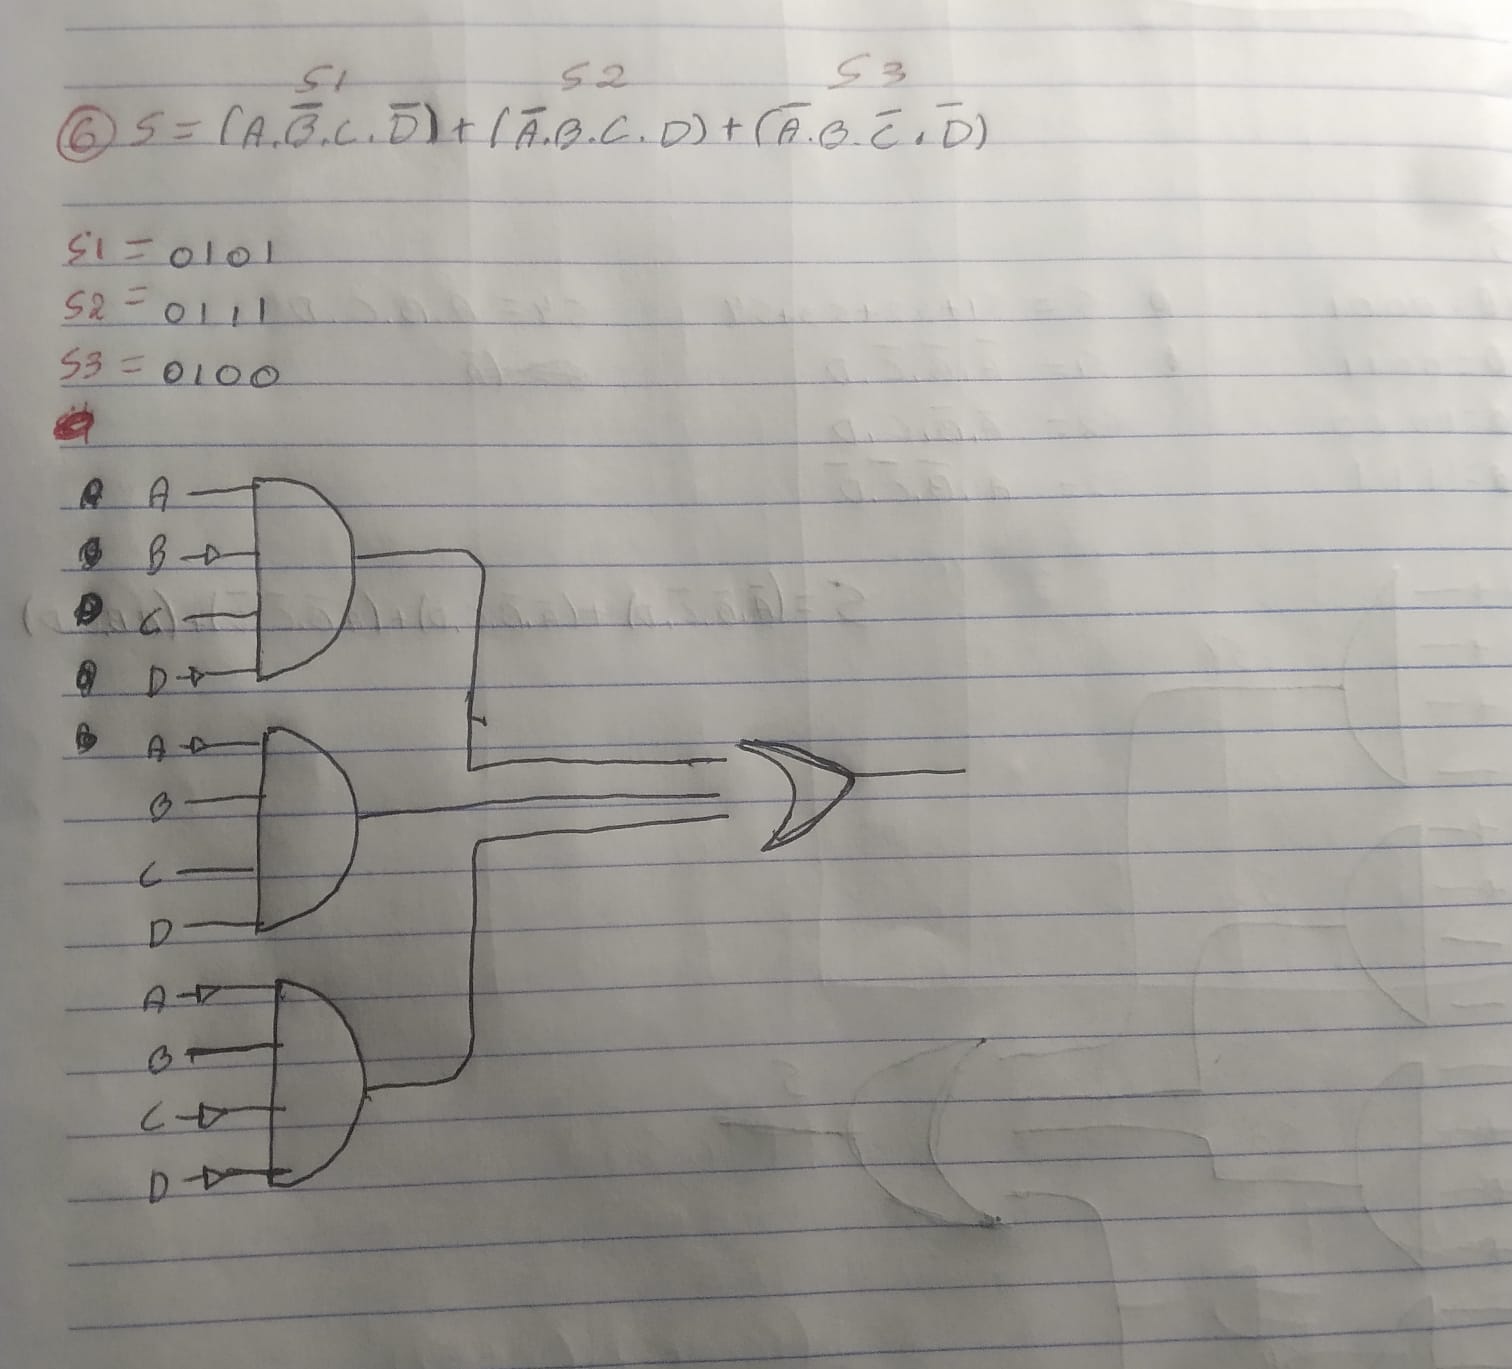 S1 S2 S3
⑥ S = (A.B̅.C.D̅) + (A̅.B.C.D) + (A̅.B.C̅.D̅)
S1 = 0101
S2 = 0111
S3 = 0100
A
B
C
D
A
B
C
D
A
B
C
D